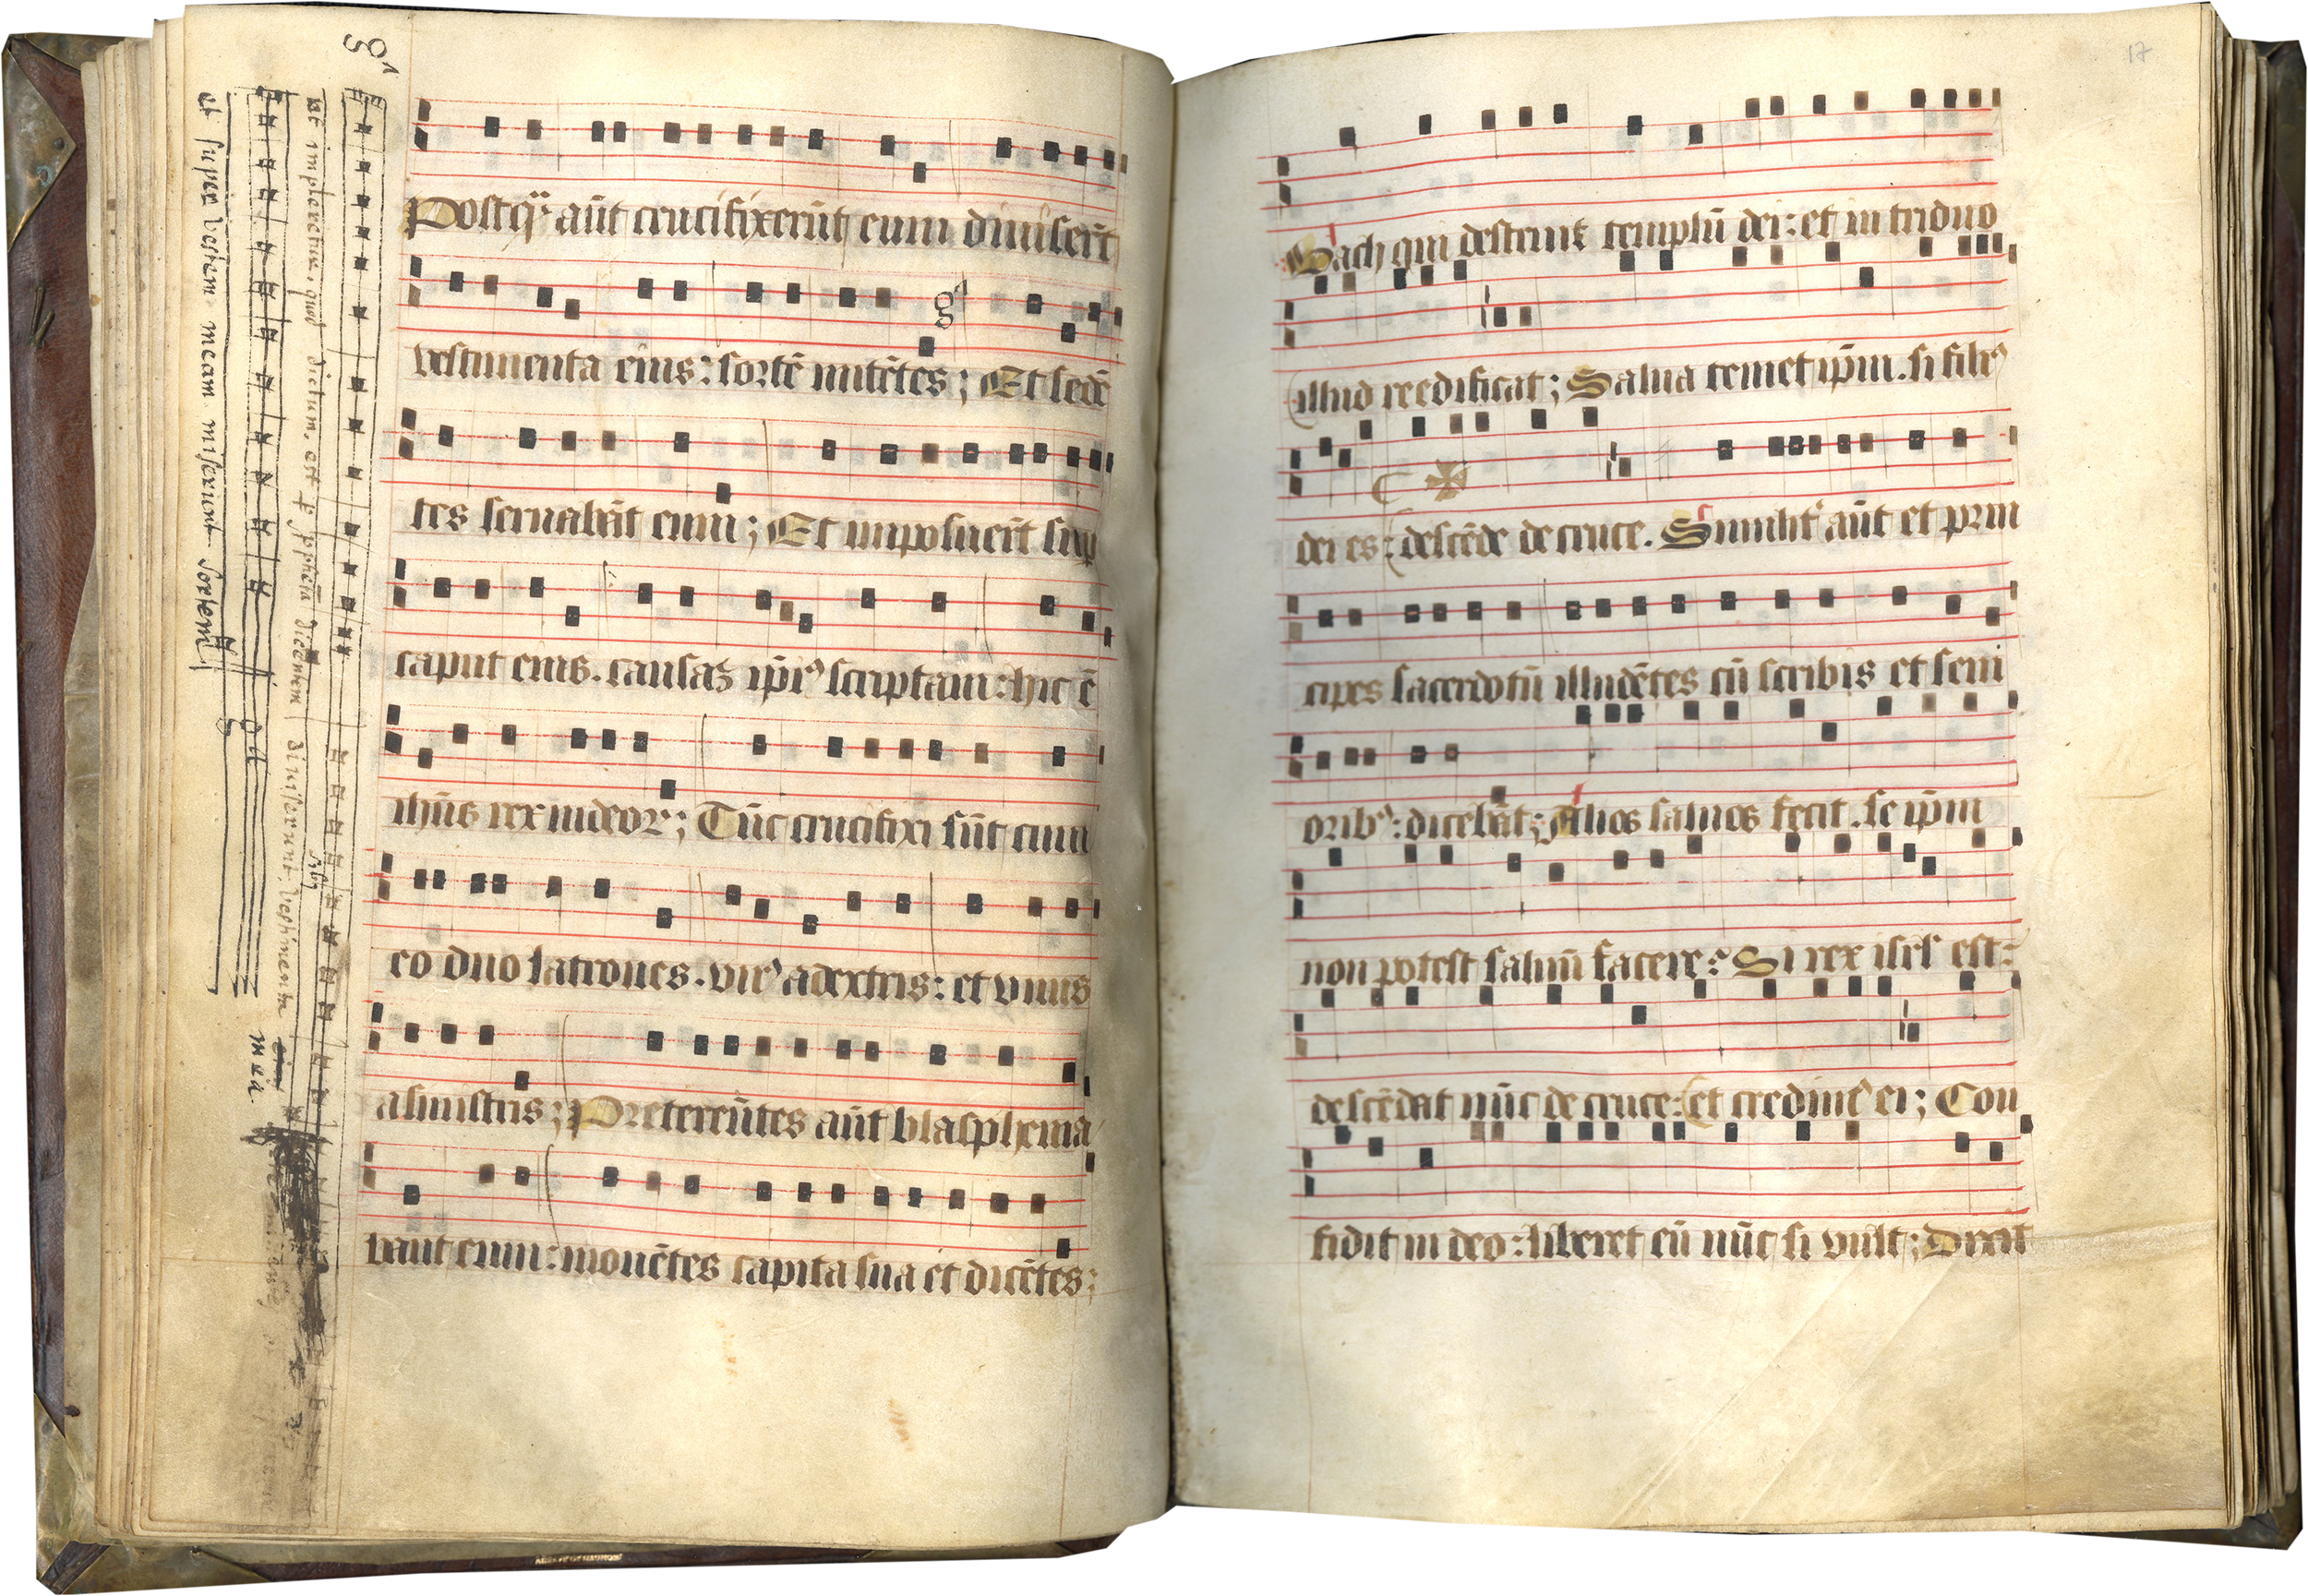 g⁴
Postq̄ᷓ aūt crucifixerūt eum diuiserūt
vestimenta eius: sortē mitētes; Et sedē
g⁴
tes seruabāt eum; Et imposuerūt sup
caput eius. causaꝫ ip̄iꝰ scriptam: hic ē
ihūs rex iudeoꝝ; Tūc crucifixi sūt cum
eo duo latrones. vnꝰ adextris: et vnus
asinistris; Pretereūtes aūt blasphema
bant eum: mouētes capita sua et dicētes;
ut impleretur, quod dictum, est p prphetā dicentem diuiserunt, sibi vestimenta
mea.
et super vestem meam miserunt sortem
17
Vach qui destruit templū dei: et in triduo
illud reedificat; Salua temet ip̄m. si filiꝰ
dei es: descēde de cruce. Similit᷑ aūt et prin
cipes sacerdotū illudētes cū scribis et seni
oribꝰ: dicebāt; Alios saluos fecit. se ip̄m
non potest saluū facere: Si rex isrl' est:
descēdat nūc de cruce: et credimꝰ ei; Con
fidit in deo: liberet eū nūc si vult; Dixit